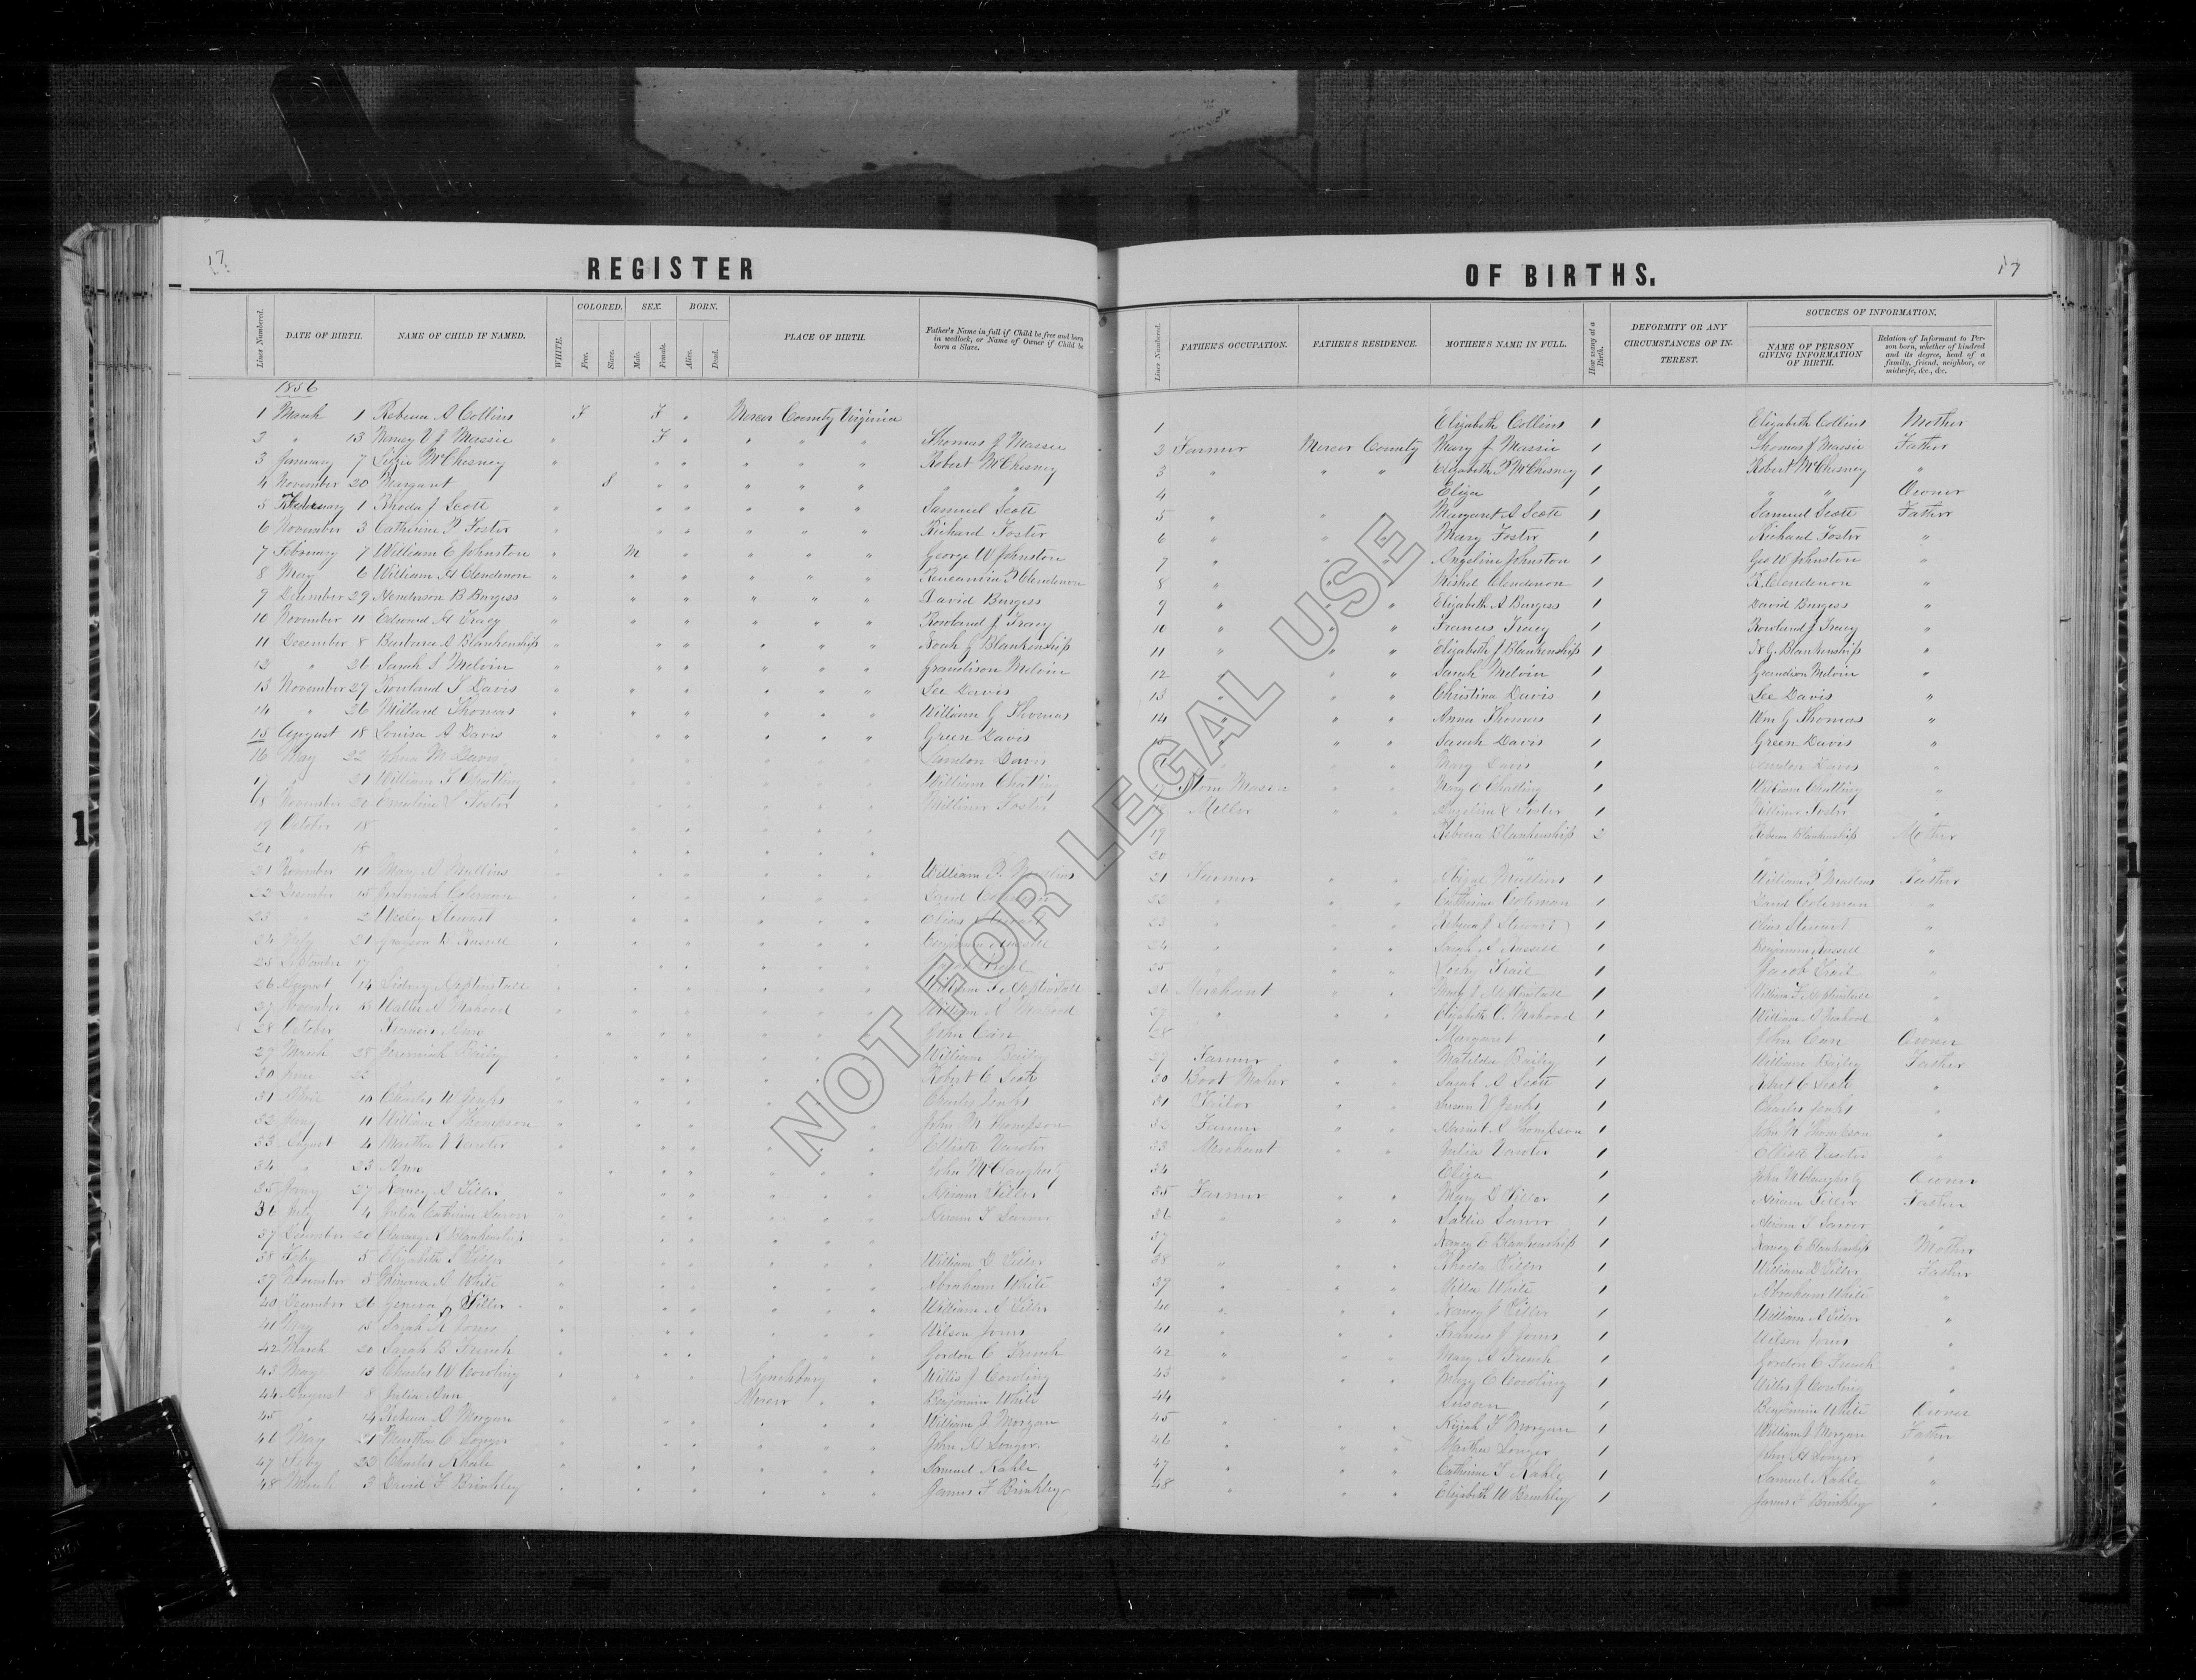 17
REGISTER
OF BIRTHS.
17
Lines Numbered.
DATE OF BIRTH.
NAME OF CHILD IF NAMED.
WHITE.
COLORED.
Free.
Slave.
SEX.
Male.
Female.
BORN.
Alive.
Dead.
PLACE OF BIRTH.
Father's Name in full if Child be free and born in wedlock, or Name of Owner if Child be born a Slave.
Lines Numbered.
FATHER'S OCCUPATION.
FATHER'S RESIDENCE.
MOTHER'S NAME IN FULL.
How many at a Birth.
DEFORMITY OR ANY CIRCUMSTANCES OF INTEREST.
SOURCES OF INFORMATION.
NAME OF PERSON GIVING INFORMATION OF BIRTH.
Relation of Informant to Person born, whether of kindred and its degree, head of a family, friend, neighbor, or midwife, &c., &c.
1856
1 March 1 Rebecca A Collins F F " Mercer County Virginia 1 Elizabeth Collins 1 Elizabeth Collins Mother
2 " 13 Nancy V J Massie " F " " " " Thomas J Massie 2 Farmer Mercer County Mary J Massie 1 Thomas J Massie Father
3 January 7 Lizzie McChesney " " " " " " Robert McChesney 3 " " " Elizabeth P McChesney 1 Robert McChesney "
4 November 20 Margaret S " " " " " " " 4 Eliza 1 " " Owner
5 February 1 Rhoda J Scott " " " " " " Samuel Scott 5 " " Margaret A Scott 1 Samuel Scott Father
6 November 3 Catherine P Foster " " " " " " Richard Foster 6 " " Mary Foster 1 Richard Foster "
7 February 7 William E Johnston " M " " " " George W Johnston 7 " " Angeline Johnston 1 Geo W Johnston "
8 May 6 William A Clendenon " " " " " " Clendenon 8 " Clendenon 1 R. Clendenon "
9 December 29 Henderson B Burgess " " " " " " David Burgess 9 " " Elizabeth A Burgess 1 David Burgess "
10 November 11 Edward H Tracy " " " " " " Rowland J Tracy 10 " " " Frances Tracy 1 Rowland J Tracy "
11 December 8 Barbara A Blankenship " " " " " " Noah G Blankenship 11 " " " Elizabeth J Blankenship 1 N G Blankenship "
12 " 26 Sarah S Melvin " " " " " " Grandison Melvin 12 " " Sarah Melvin 1 Grandison Melvin "
13 November 29 Rowland S Davis " " " " " " Lee Davis 13 " " " Christina Davis 1 Lee Davis "
14 " 26 Millard Thomas " " " " " " William G Thomas 14 " " Anna Thomas 1 Wm G Thomas "
15 August 18 Louisa A Davis " " " " " " Green Davis 15 " " Sarah Davis 1 Green Davis "
16 May 22 M Davis " " " " " " Landon Davis " Mary Davis 1 Landon Davis "
17 " 21 William Chatting " " " " " " William Chatting Stone Mason Mary C Chatting 1 William Chatting "
18 November 20 Emeline S Foster " " " " " " Foster Miller Foster 1 Foster "
19 October 18 " " " " " " 19 Rebecca Blankenship 2 Rebecca Blankenship Mother
20 " 18 " " " " " " 20 " " "
21 November 11 Mary A Mullins " " " " " " William P. Mullins 21 Farmer " " Abigal Mullins 1 William P Mullins Father
22 December 15 Jeremiah Coleman " " " " " " David Coleman 22 " " " Catherine Coleman 1 David Coleman "
23 " 21 Wesley Stewart " " " " " " Elias Stewart 23 " " " Rebecca J Stewart 1 Elias Stewart "
24 July 21 Grayson B Russell " " " " " " Benjamin Russell 24 " " " Sarah A Russell 1 Benjamin Russell "
25 September 17 " " " " " " Jacob Trail 25 " " " Trail 1 Jacob Trail "
26 August 14 Sidney Heptinstall " " " " " " William F Heptinstall 26 Merchant " " Mary Heptinstall 1 William F Heptinstall "
27 November 13 A Mahood " " " " " " William A Mahood 27 " " " Elizabeth C. Mahood 1 William A Mahood "
28 October Frances Ann " " " " " " John Carr 28 Margaret 1 John Carr Owner
29 March 28 Jeremiah Bailey " " " " " " William Bailey 29 Farmer " " Matilda Bailey 1 William Bailey Father
30 June 22 " " " " " " Robert C Scott 30 Boot Maker " " Sarah A Scott 1 Robert C Scott "
31 10 Charles W Jenks " " " " Charles Jenks 31 Tailor " " Susan V Jenks 1 Charles Jenks "
32 Jany 11 William S Thompson " " " " John M Thompson 32 Farmer " " Harriet A Thompson 1 John M Thompson "
33 August 4 Martha V Vawter " " " " Elliott Vawter 33 Merchant " " Julia Vawter 1 Elliott Vawter "
34 " 23 Ann " " " " " " John McClaugherty 34 Eliza 1 John McClaugherty Owner
35 Jany 27 Nancy A Tiller " " " " " " Hiram Tiller 35 Farmer " " Mary D Tiller 1 Hiram Tiller Father
36 July 4 Julia Catherine Sarver " " " " " " Hiram T Sarver 36 " " " Sallie Sarver 1 Hiram T Sarver "
37 December 20 Blankenship " " " " " " 37 Nancy C Blankenship 1 Nancy C Blankenship Mother
38 Feby 5 Elizabeth S Tiller " " " " " " William D Tiller 38 " " " Rhoda Tiller 1 William D Tiller Father
39 November 5 Minerva A White " " " " " " Abraham White 39 " " " White 1 Abraham White "
40 December 26 Geneva Tiller " " " " " " William A Tiller 40 " " " Nancy J Tiller 1 William A Tiller "
41 May 15 Sarah Jones " " " " " " Wilson Jones 41 " " " Frances J Jones 1 Wilson Jones "
42 March 20 Sarah B French " " " " " " Gordon C French 42 " " " Mary A French 1 Gordon C French "
43 May 13 Charles W Cowling " " " Lynchburg " Willis J Cowling 43 " " " Mary C Cowling 1 Willis J Cowling "
44 August 8 Julia Ann " Mercer " " Benjamin White 44 Susan 1 Benjamin White Owner
45 " 14 Rebecca A Morgan " " " " " " William J Morgan 45 " " " Morgan 1 William J Morgan Father
46 May 21 Martha C Songer " " " " " " John H Songer 46 " " " Martha Songer 1 John H Songer "
47 Feby 22 Charles Khale " " " " " " Samuel Kahle 47 " " " Catherine Kahle 1 Samuel Kahle "
48 March 3 David F Brinkley " " " " " " James F Brinkley 48 " " " Elizabeth W Brinkley 1 James F Brinkley "
NOT FOR LEGAL USE
1
1